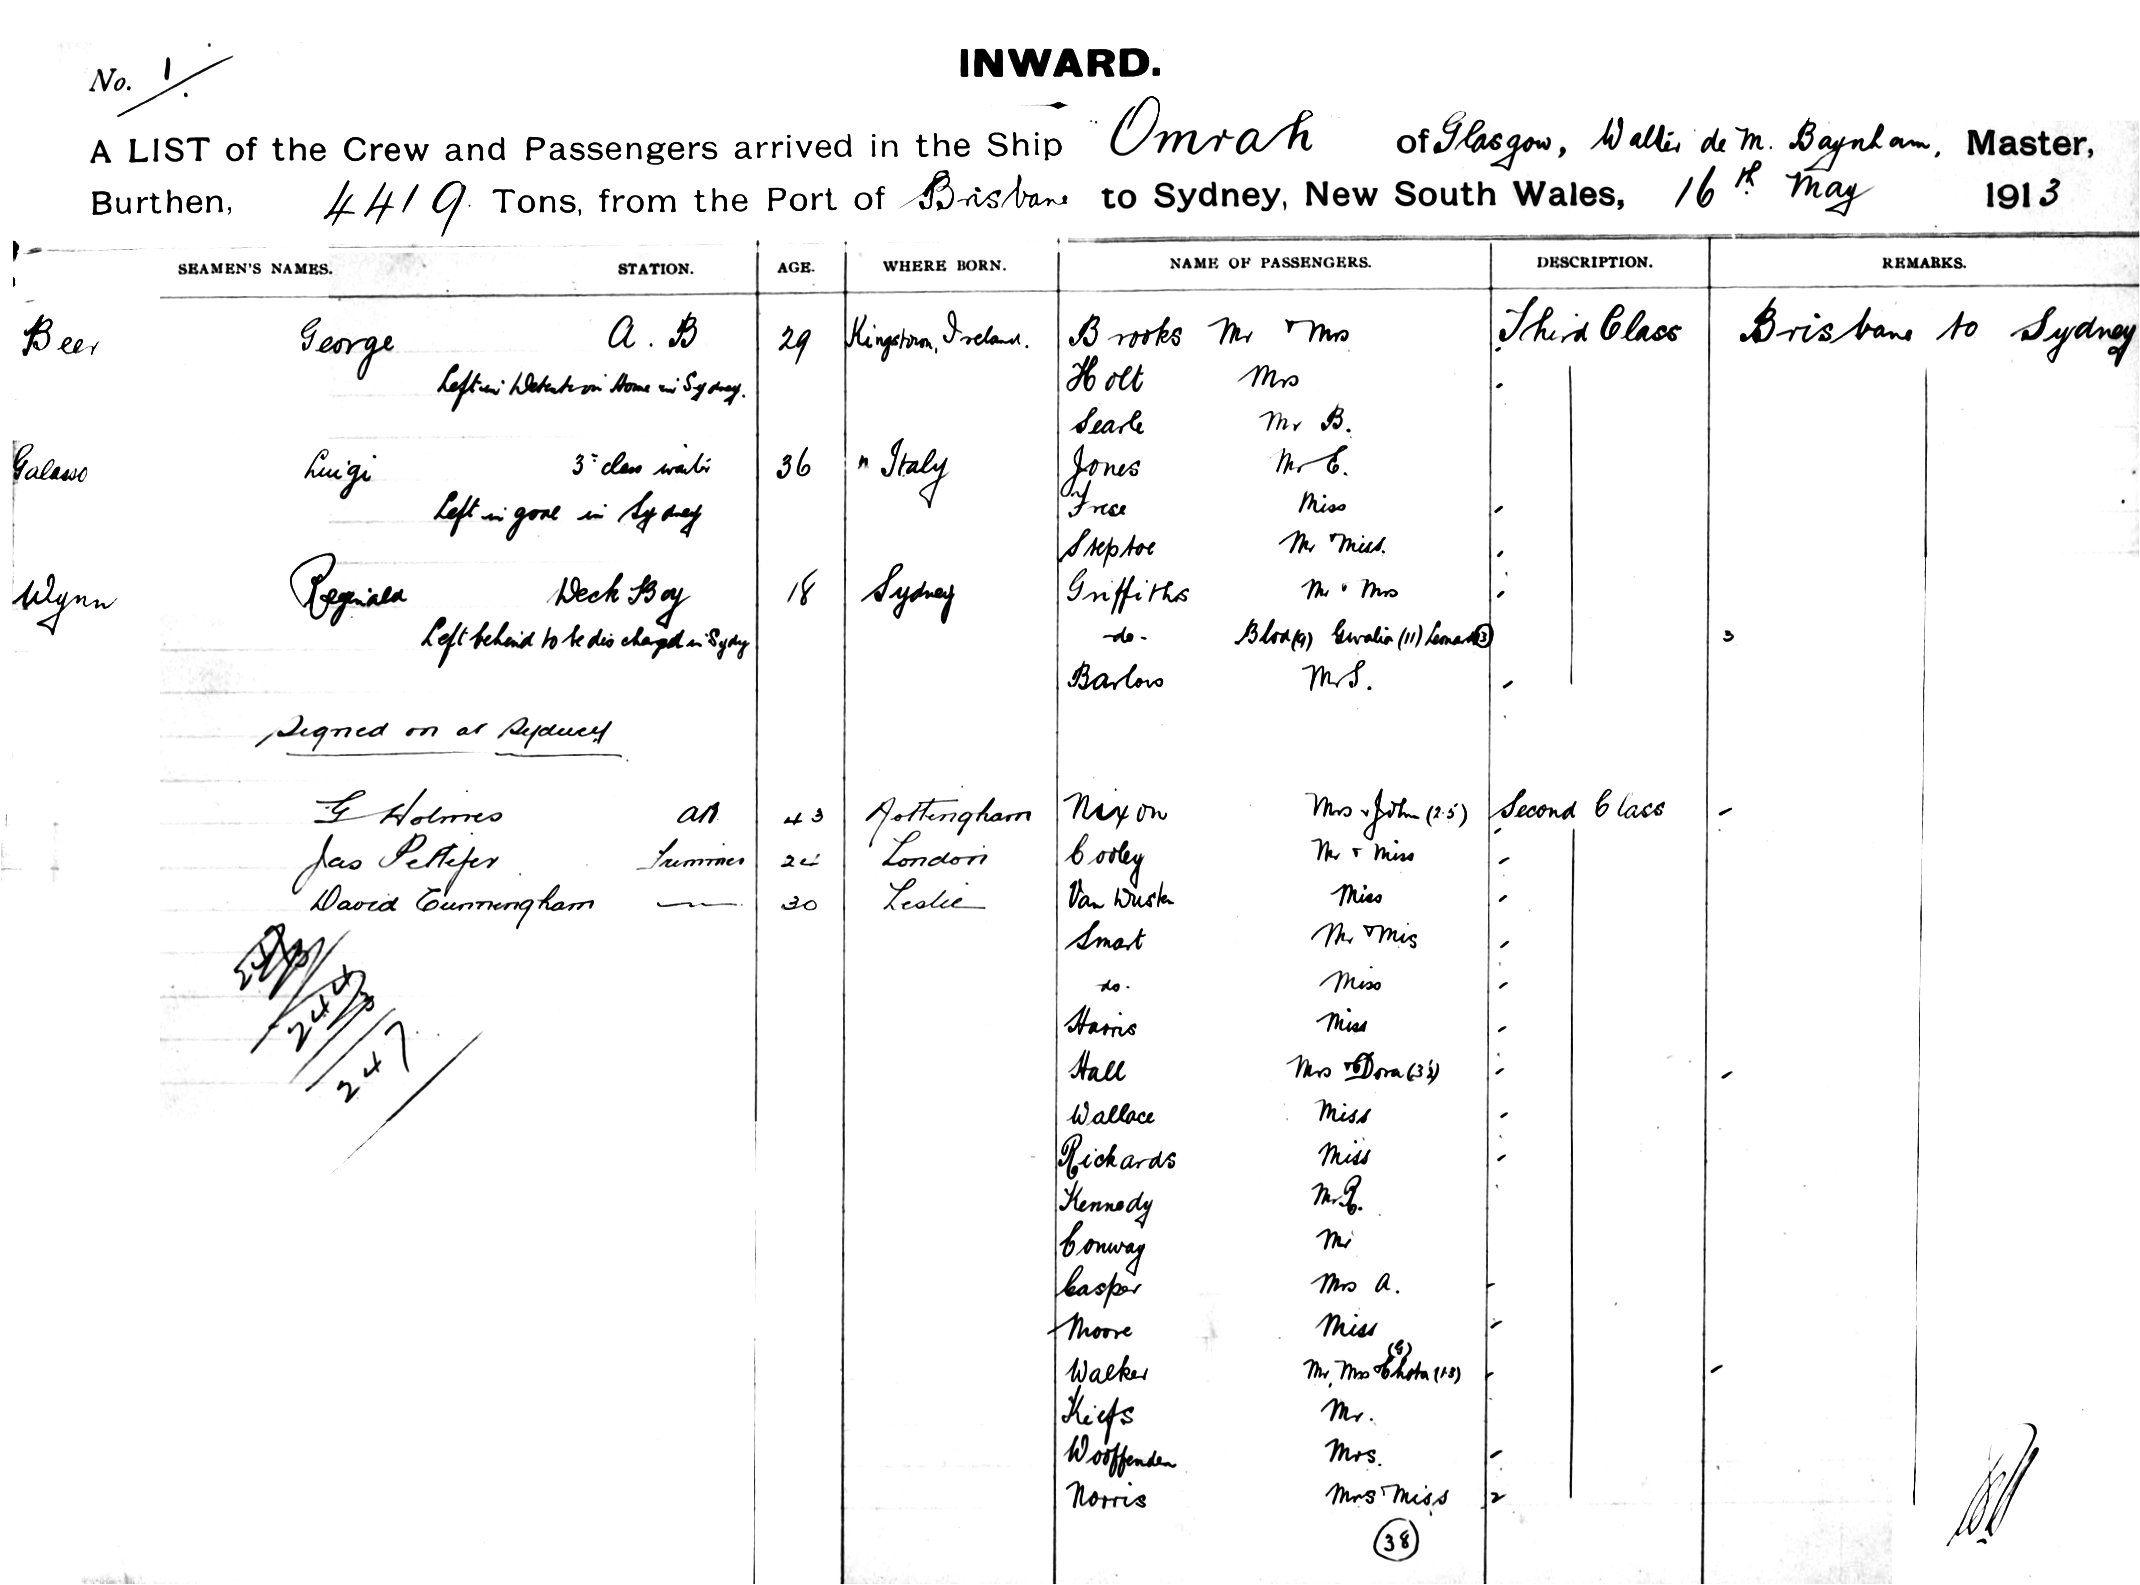 No. 1/.
INWARD.
A LIST of the Crew and Passengers arrived in the Ship "Omrah of Glasgow, Walter de M. Baynham, Master,
Burthen, 4419 Tons, from the Port of Brisbane to Sydney, New South Wales, 16th May 1913
SEAMEN'S NAMES. STATION. AGE. WHERE BORN. NAME OF PASSENGERS. DESCRIPTION. REMARKS.
Beer George A.B 29 Kingstown, Ireland. Brooks Mr & Mrs Third Class Brisbane to Sydney
Left in Detention Home in Sydney. Holt Mrs
Searle Mr B.
Galasso Luigi 3rd class waiter 36 Italy Jones Mr E.
Left in gaol in Sydney Frese Miss
Steptoe Mr & Miss.
Wynn Reginald Deck Boy 18 Sydney Griffiths Mr & Mrs
Left behind to be discharged in Sydney -do- (9) Gwalia (11) Leonard (3) 3
Barlow Mr S.
Signed on at Sydney
G Holmes AB 43 Nottingham Nixon Mrs & John (2.5) Second Class
Jas Pettifer Trimmer 24 London Cooley Mr & Miss
David Cunningham 30 Leslie Van Miss
Smart Mr & Mrs
do. Miss
Harris Miss
Hall Mrs & Dora (3½)
Wallace Miss
Rickards Miss
Kennedy Mr R.
Conway Mr
Casper Mrs A.
Moore Miss
Walker Mr, Mrs & (1.8)
Mr.
Wooffenden Mrs.
Norris Mrs & Miss 2
244/3
247
38